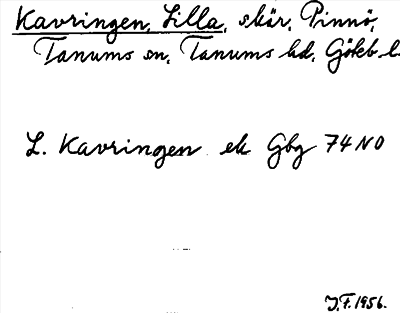 Kavringen, Lilla, skär, Pinnö,
Tanums sn, Tanums hd, Göteb l.
L. Kavringen ek Gbg 74 NO
J.F. 1956.